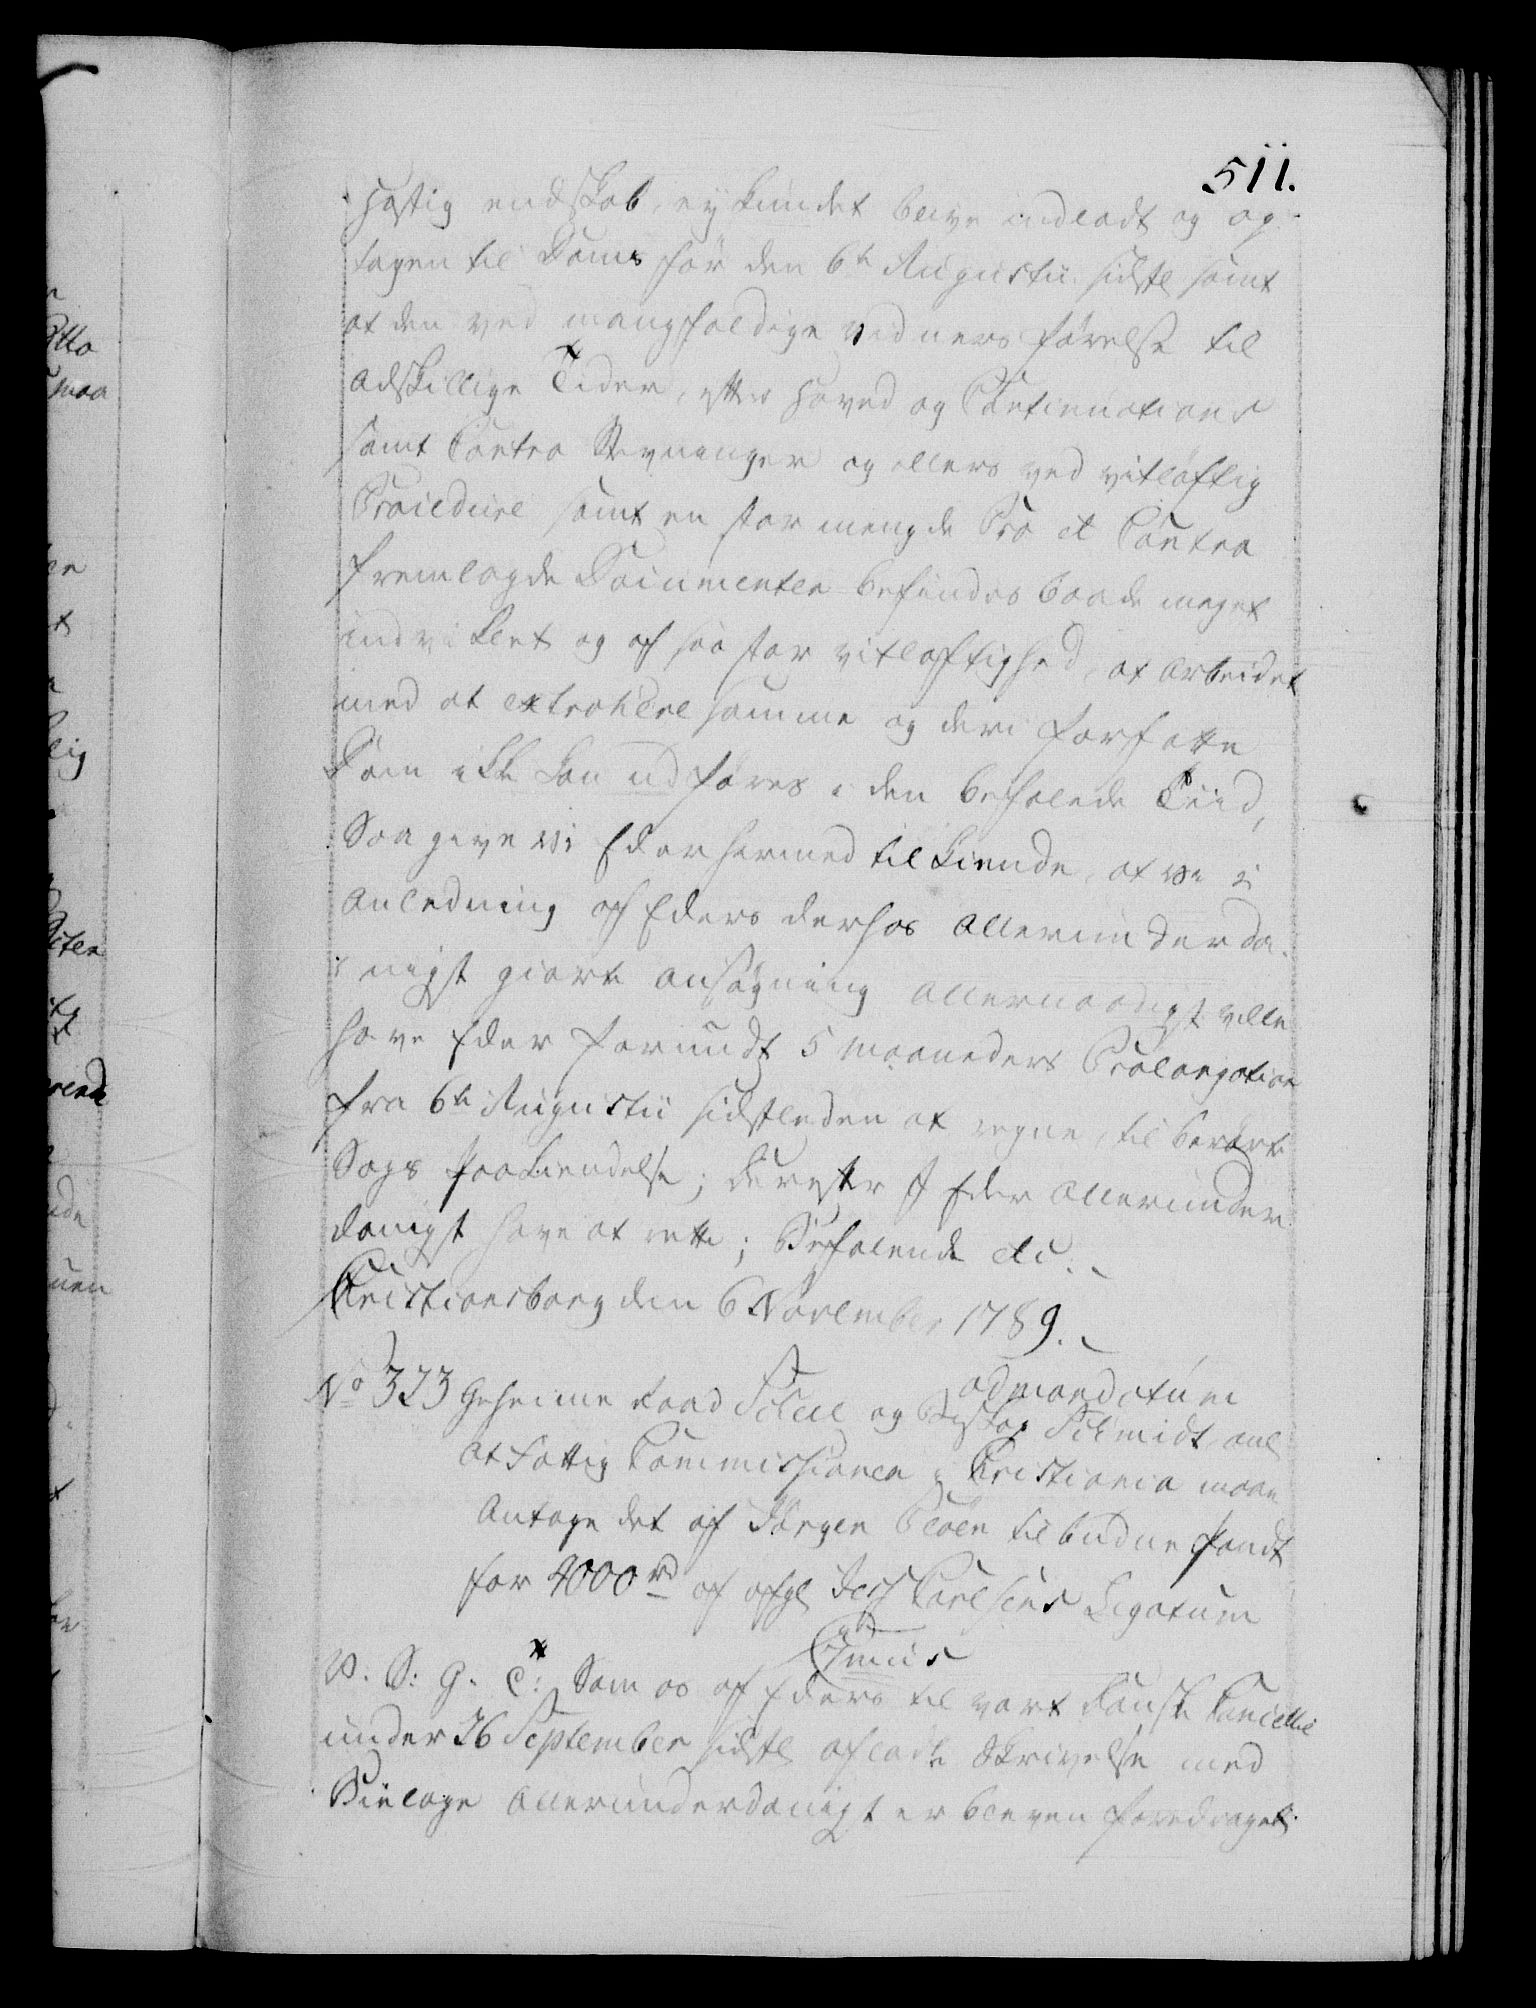 511.
hastig endskab, ey kundet blive indladt og op¬
tagen til Doms før den 6te Augustii sidstl samt
at den ved mangfoldige Vidners førelse til
adskillige Tider, efter Hoved og Continuations
samt Contra Stevninger og ellers ved vitløftig
Procedure samt en stor mengde Pro et Contra
fremlagde Documenter befindes baade meget
indviklet og af saa stor vitløftighed, at arbeidet
med at extrahere samme og deri forfatte
Dom ikke kan udføres i den befalede Tiid,
Saa give Vi Eder hermed tilkiende, at Vi i
Anledning af Eders derhos allerunderda¬
nigst giorte ansøgning allernaadigst ville
have Eder forundt 5 maaneders Prolongation
fra 6te Augustii sidstleden at regne, til berørte
Sags Paakiendelse; derefter I Eder allerunder
danigst have at rette; Befalende etc.
Christiansborg den 6 November 1789.
ad mandatum
No 323 Geheime Raad Scheel og Biskop Schmidt anl
at Fattig Commissionen i Christiania maae
Antage det af Jørgen Pløen tilbudne Pandt
for 4000 rd af afgl Jess Carlsens Legatum
C7mus
V. S: G. T: Som os af Eders til vort Danske Cancellie
under 26 September sidstl afladte Skrivelse med
Bielage allerunderdanigst er bleven foredraget